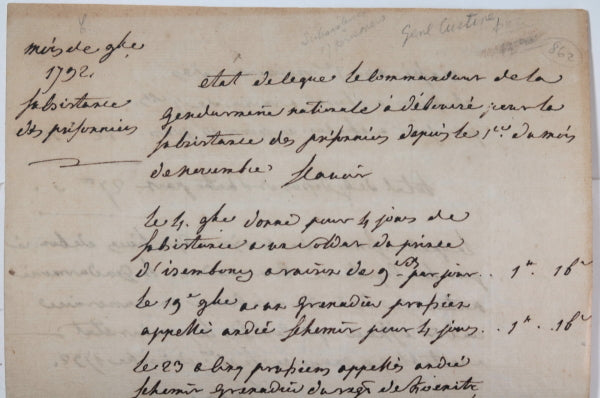 Genl Custine
862
mois de 9bre
1792.
subsistance
des prisonniers
état de ce que le Commandeur de la
Gendarmerie nationale a débourcé pour la
subsistance des prisonniers depuis le 1er du mois
de novembre Scavoir
le 4. 9bre donné pour 4 jours de
subsistance a un soldat du prince
d'isembourg a raison de 9 sols par jour.. 1#. 16s
le 19e 9bre a un Grenadier prussien
appellé andré Schemir pour 4 jours.. 1#.. 16s
le 23 a cinq prussiens appellés andré
schemir Grenadier du regt de